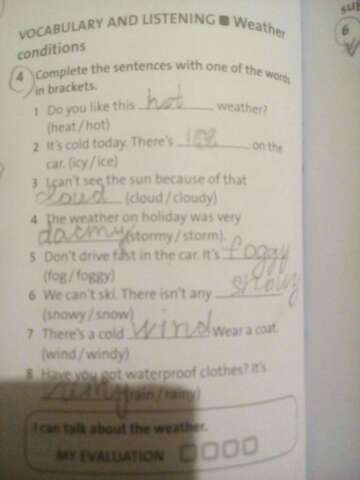 VOCABULARY AND LISTENING ■ Weather
conditions
4 Complete the sentences with one of the words
in brackets.
1 Do you like this hot weather?
(heat/hot)
2 It's cold today. There's ice on the
car. (icy/ice)
3 I can't see the sun because of that
cloud (cloud/cloudy)
4 The weather on holiday was very
(stormy/storm).
5 Don't drive fast in the car. It's foggy
(fog/foggy)
6 We can't ski. There isn't any snowy
(snowy/snow)
7 There's a cold wind Wear a coat.
(wind/windy)
8 Have you got waterproof clothes? It's
(rain/rainy)
I can talk about the weather.
MY EVALUATION
6